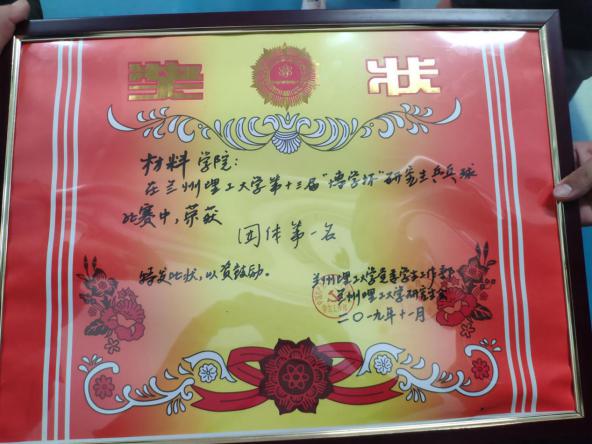 奖状
材料学院：
在兰州理工大学第十三届“博学杯”研究生乒乓球
比赛中，荣获
团体第一名
特发此状，以资鼓励。
兰州理工大学党委学生工作部
兰州理工大学研究生会
二〇一九年十一月